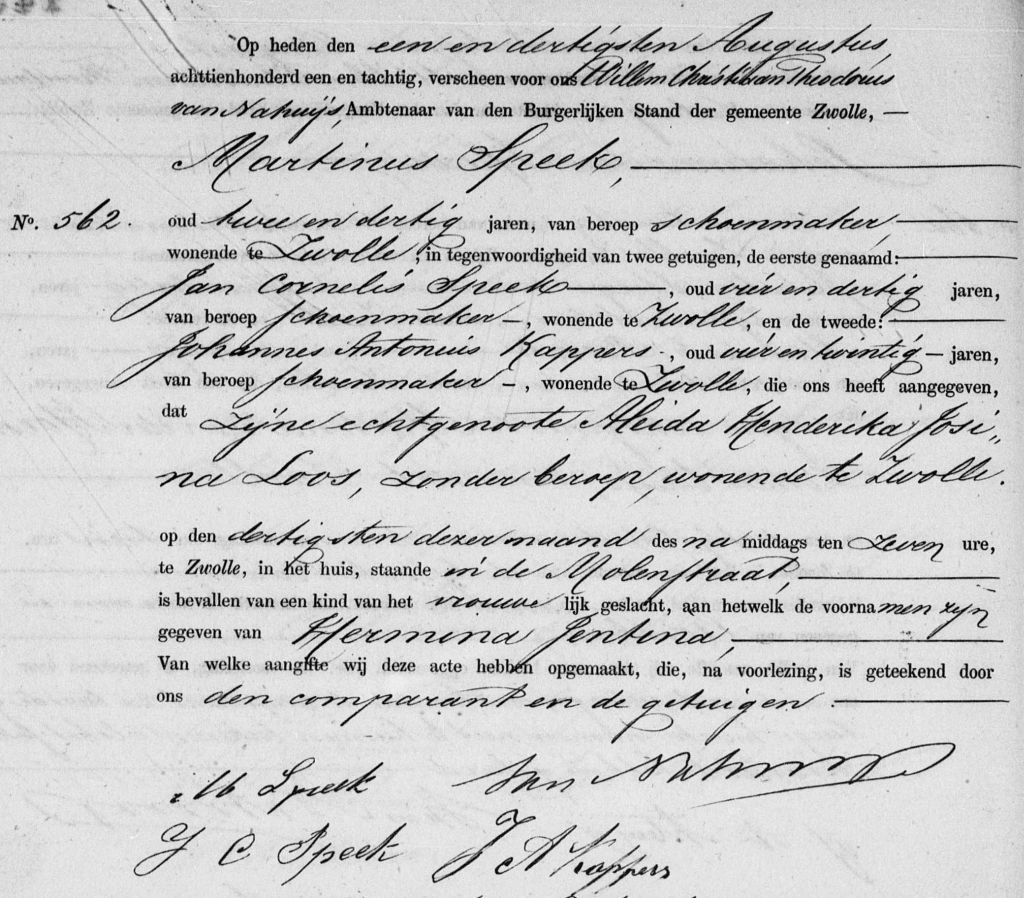 Op heden den een en dertigsten Augustus,
achttienhonderd een en tachtig, verscheen voor ons Willem Christiaan Theodorus
van Nahuijs, Ambtenaar van den Burgerlijken Stand der gemeente Zwolle, —
Martinus Speek, —
No. 562. oud twee en dertig jaren, van beroep schoenmaker, —
wonende te Zwolle, in tegenwoordigheid van twee getuigen, de eerste genaamd: —
Jan Cornelis Speek —, oud vier en dertig jaren,
van beroep schoenmaker —, wonende te Zwolle, en de tweede: —
Johannes Antonius Kappers -, oud vier en twintig — jaren,
van beroep schoenmaker —, wonende te Zwolle, die ons heeft aangegeven,
dat zijne echtgenoote Aleida Henderika Josi„
na Loos, zonder beroep, wonende te Zwolle.
op den dertigsten dezer maand des na middags ten zeven ure,
te Zwolle, in het huis, staande in de Molenstraat, —
is bevallen van een kind van het vrouwe lijk geslacht, aan hetwelk de voornamen zijn
gegeven van Hermina Jentina, —
Van welke aangifte wij deze acte hebben opgemaakt, die, na voorlezing, is geteekend door
ons den comparant en de getuigen. —
M Speek Van Nahuijs
J C Speek J A Kappers